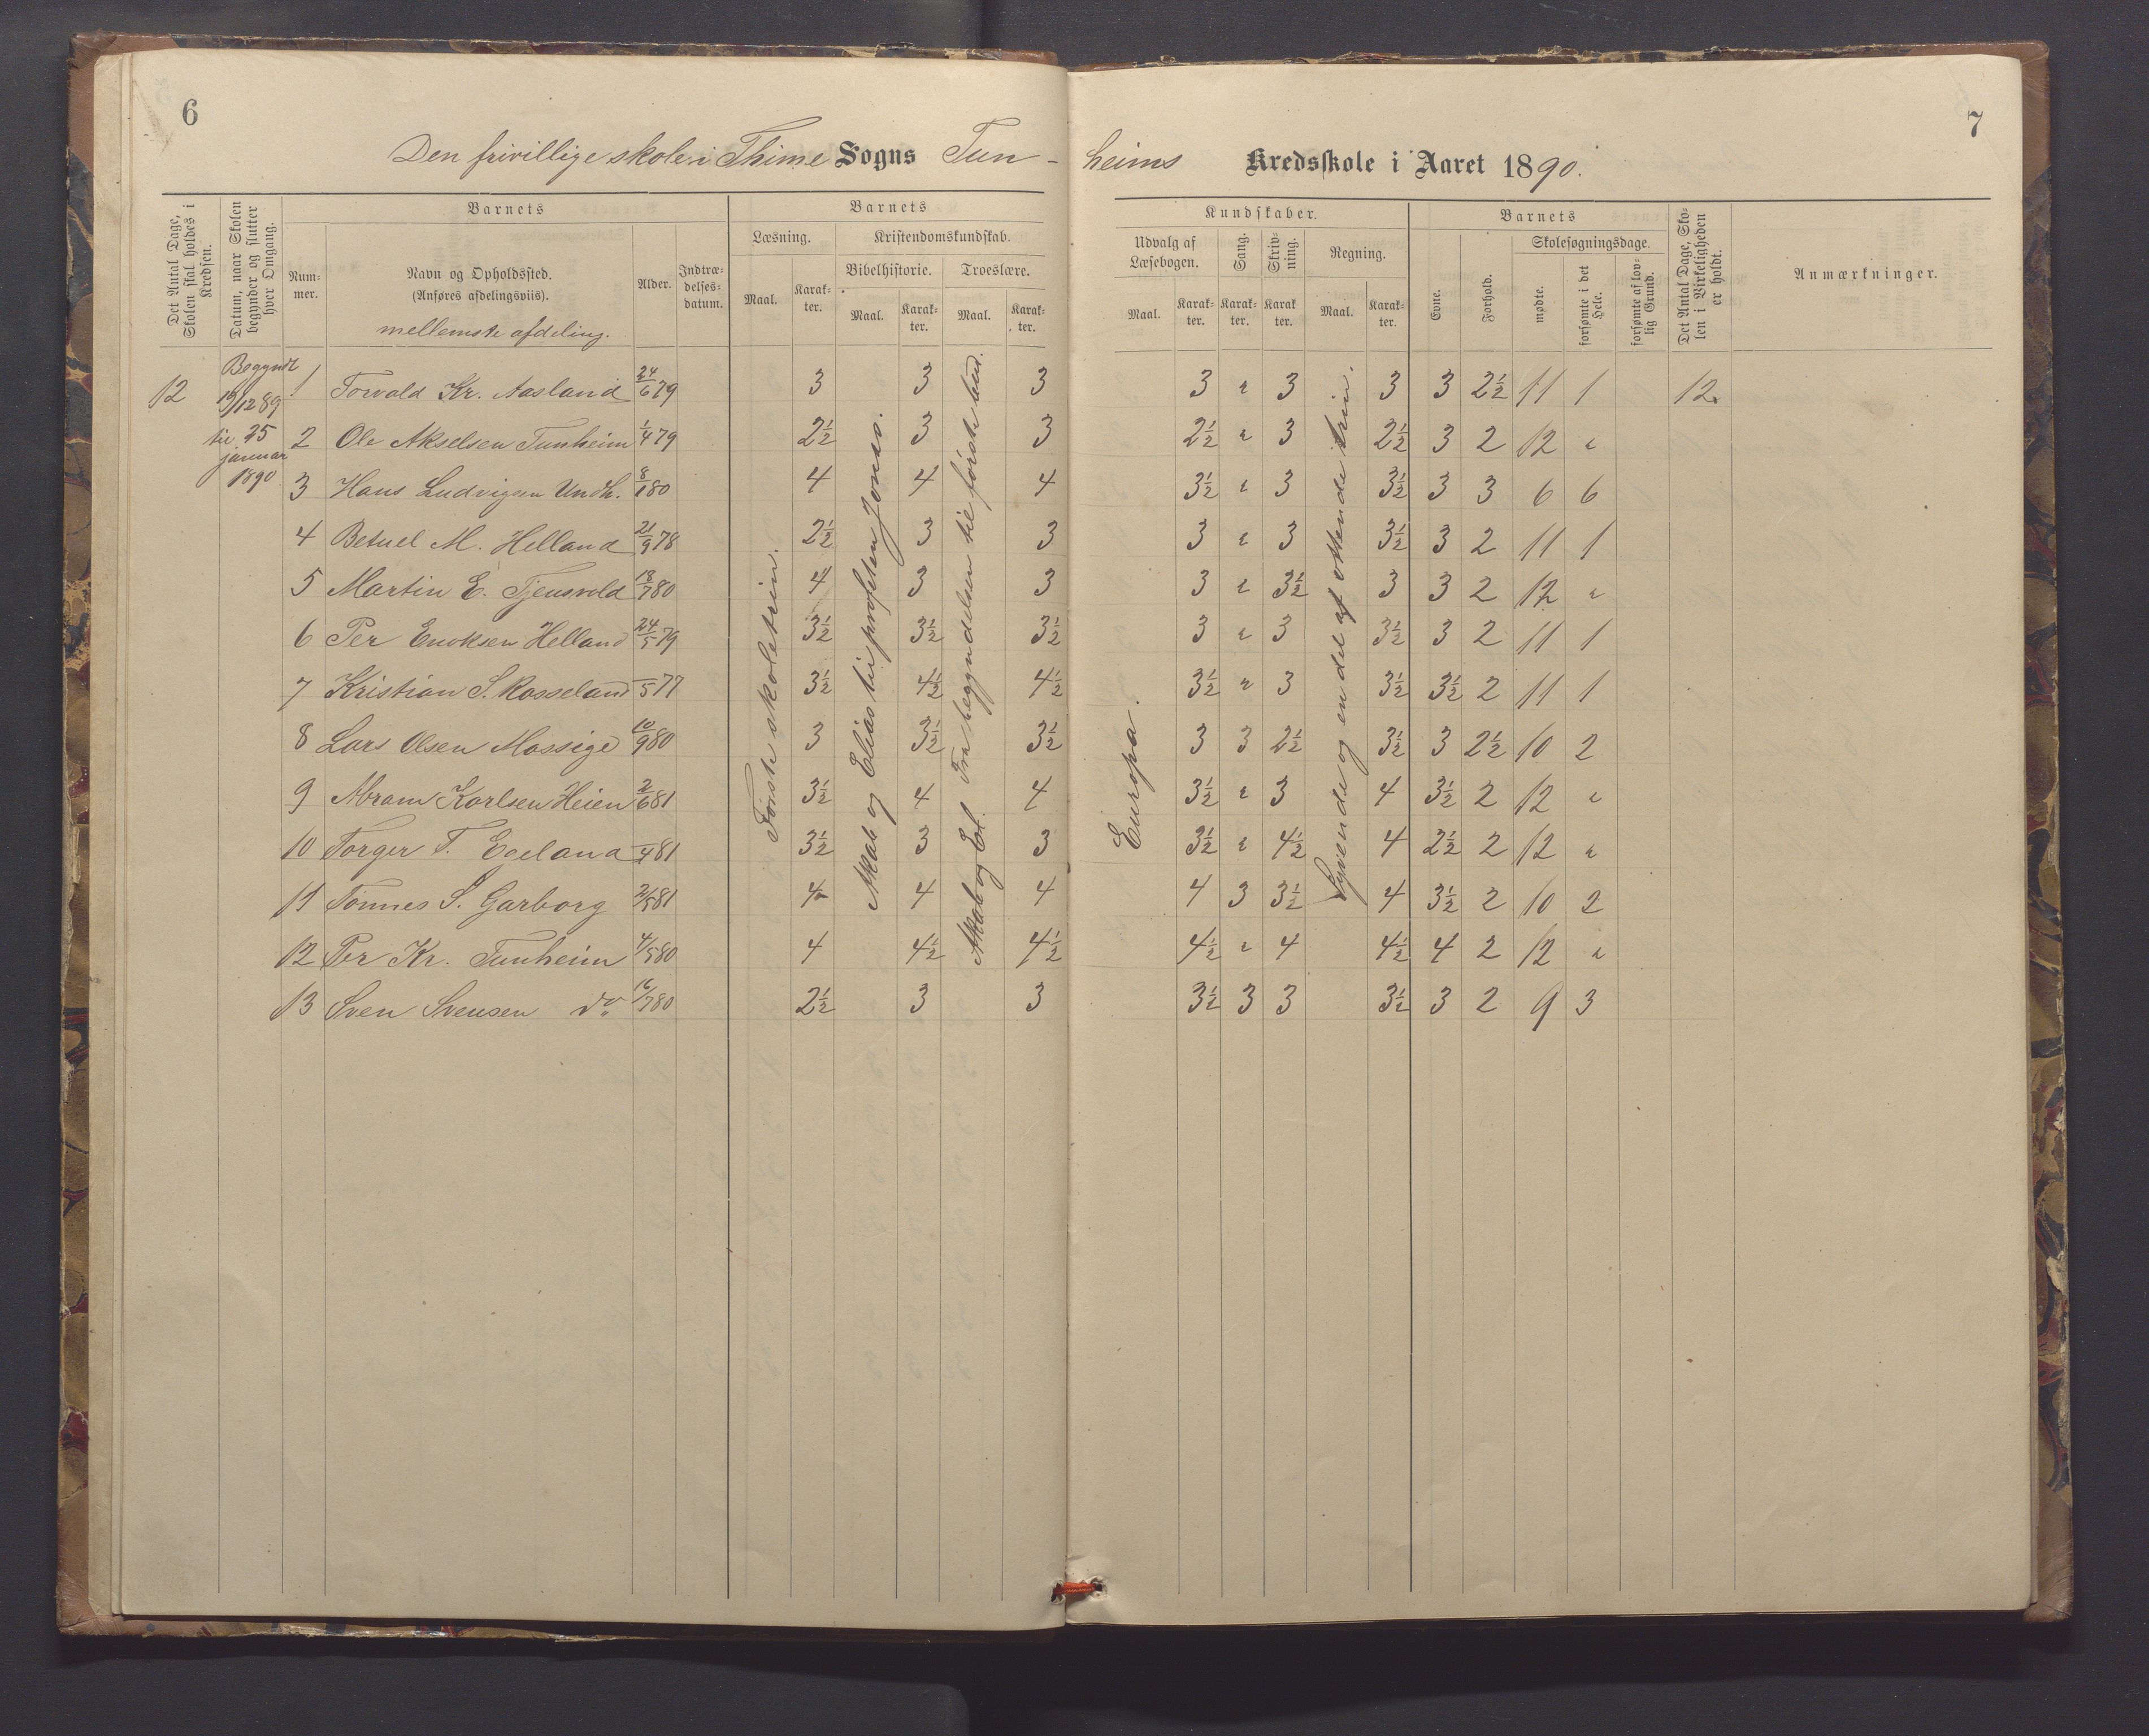 6
7
Den frivillige skole i Thime Sogns Tun-heims Kredsskole i Aaret 1890.
Det Antal Dage, Skolen skal holdes i Kredsen.
Datum, naar Skolen begynder og slutter hver Omgang.
Barnets
Num-mer.
Navn og Opholdssted.
(Anføres afdelingsviis).
mellemste afdeling.
Alder.
Indtræ-delses-datum.
Barnets
Læsning.
Maal.
Karak-ter.
Kristendomskundskab.
Bibelhistorie.
Maal.
Karak-ter.
Troeslære.
Maal.
Karak-ter.
Kundskaber.
Udvalg af Læsebogen.
Maal.
Karak-ter.
Sang.
Karak-ter.
Skriv-ning.
Karak ter.
Regning.
Maal.
Karak-ter.
Barnets
Evne.
Forhold.
Skolesøgningsdage.
mødte.
forsømte i det Hele.
forsømte af lov-lig Grund.
Det Antal Dage, Sko-len i Virkeligheden er holdt.
Anmærkninger.
12
Begyndt
/12 89
til 25
januar
1890
Første skoletrin.
Akab og Elias til profeten Jonas.
Fra begyndelsen til første bud.
Europa.
Syvende og en del af ottende trin.
1 Torvald Kr. Aasland 24/6 79 3 3 3 3 " 3 3 3 2½ 11 1 12.
2 Ole Akselsen Tunheim 1/4 79 2½ 3 3 2½ " 3 2½ 3 2 12 "
3 Hans Ludvigsen Undh. 8/1 80 4 4 4 3½ " 3 3½ 3 3 6 6
4 Betuel M. Helland 21/9 78 2½ 3 3 3 " 3 3½ 3 2 11 1
5 Martin E. Tjensvold 18/7 80 4 3 3 3 " 3½ 3 3 2 12 "
6 Per Enoksen Helland 24/5 79 3½ 3½ 3½ 3 " 3 3½ 3 2 11 1
7 Kristian S. Rosseland –/5 77 3½ 4½ 4½ 3½ " 3 3½ 3½ 2 11 1
8 Lars Olsen Mossige 10/9 80 3 3½ 3½ 3 3 2½ 3½ 3 2½ 10 2
9 Abram Karlsen Heien 2/6 81 3½ 4 4 3½ " 3 4 3½ 2 12 "
10 Torger T. Eeeland –/4 81 3½ 3 3 3½ " 4½ 4 2½ 2 12 "
11 Tønnes S. Garborg 2/5 81 4 4 4 4 3 3½ 4 3½ 2 10 2
12 Per Kr. Tunheim 4/5 80 4 4½ 4½ 4½ " 4 4½ 4 2 12 "
13 Sven Svensen do 16/7 80 2½ 3 3 3½ 3 3 3½ 3 2 9 3